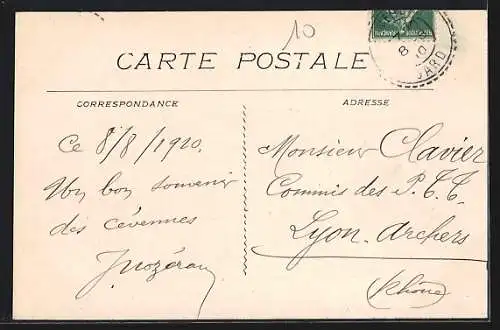 10
CARTE POSTALE
8
10
GARD
CORRESPONDANCE
ADRESSE
Ce 8/8/1910.
Un bon souvenir
des cévennes
Monsieur Clavier
Commis des P.T.T.
Lyon. Archers
(Rhône)